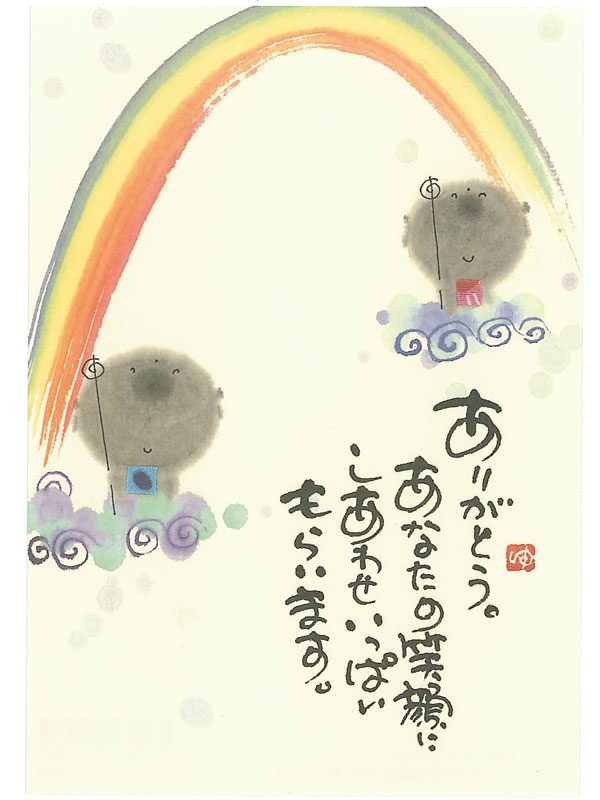 ありがとう。
あなたの笑顔に
しあわせいっぱい
もらいます。
ゆ